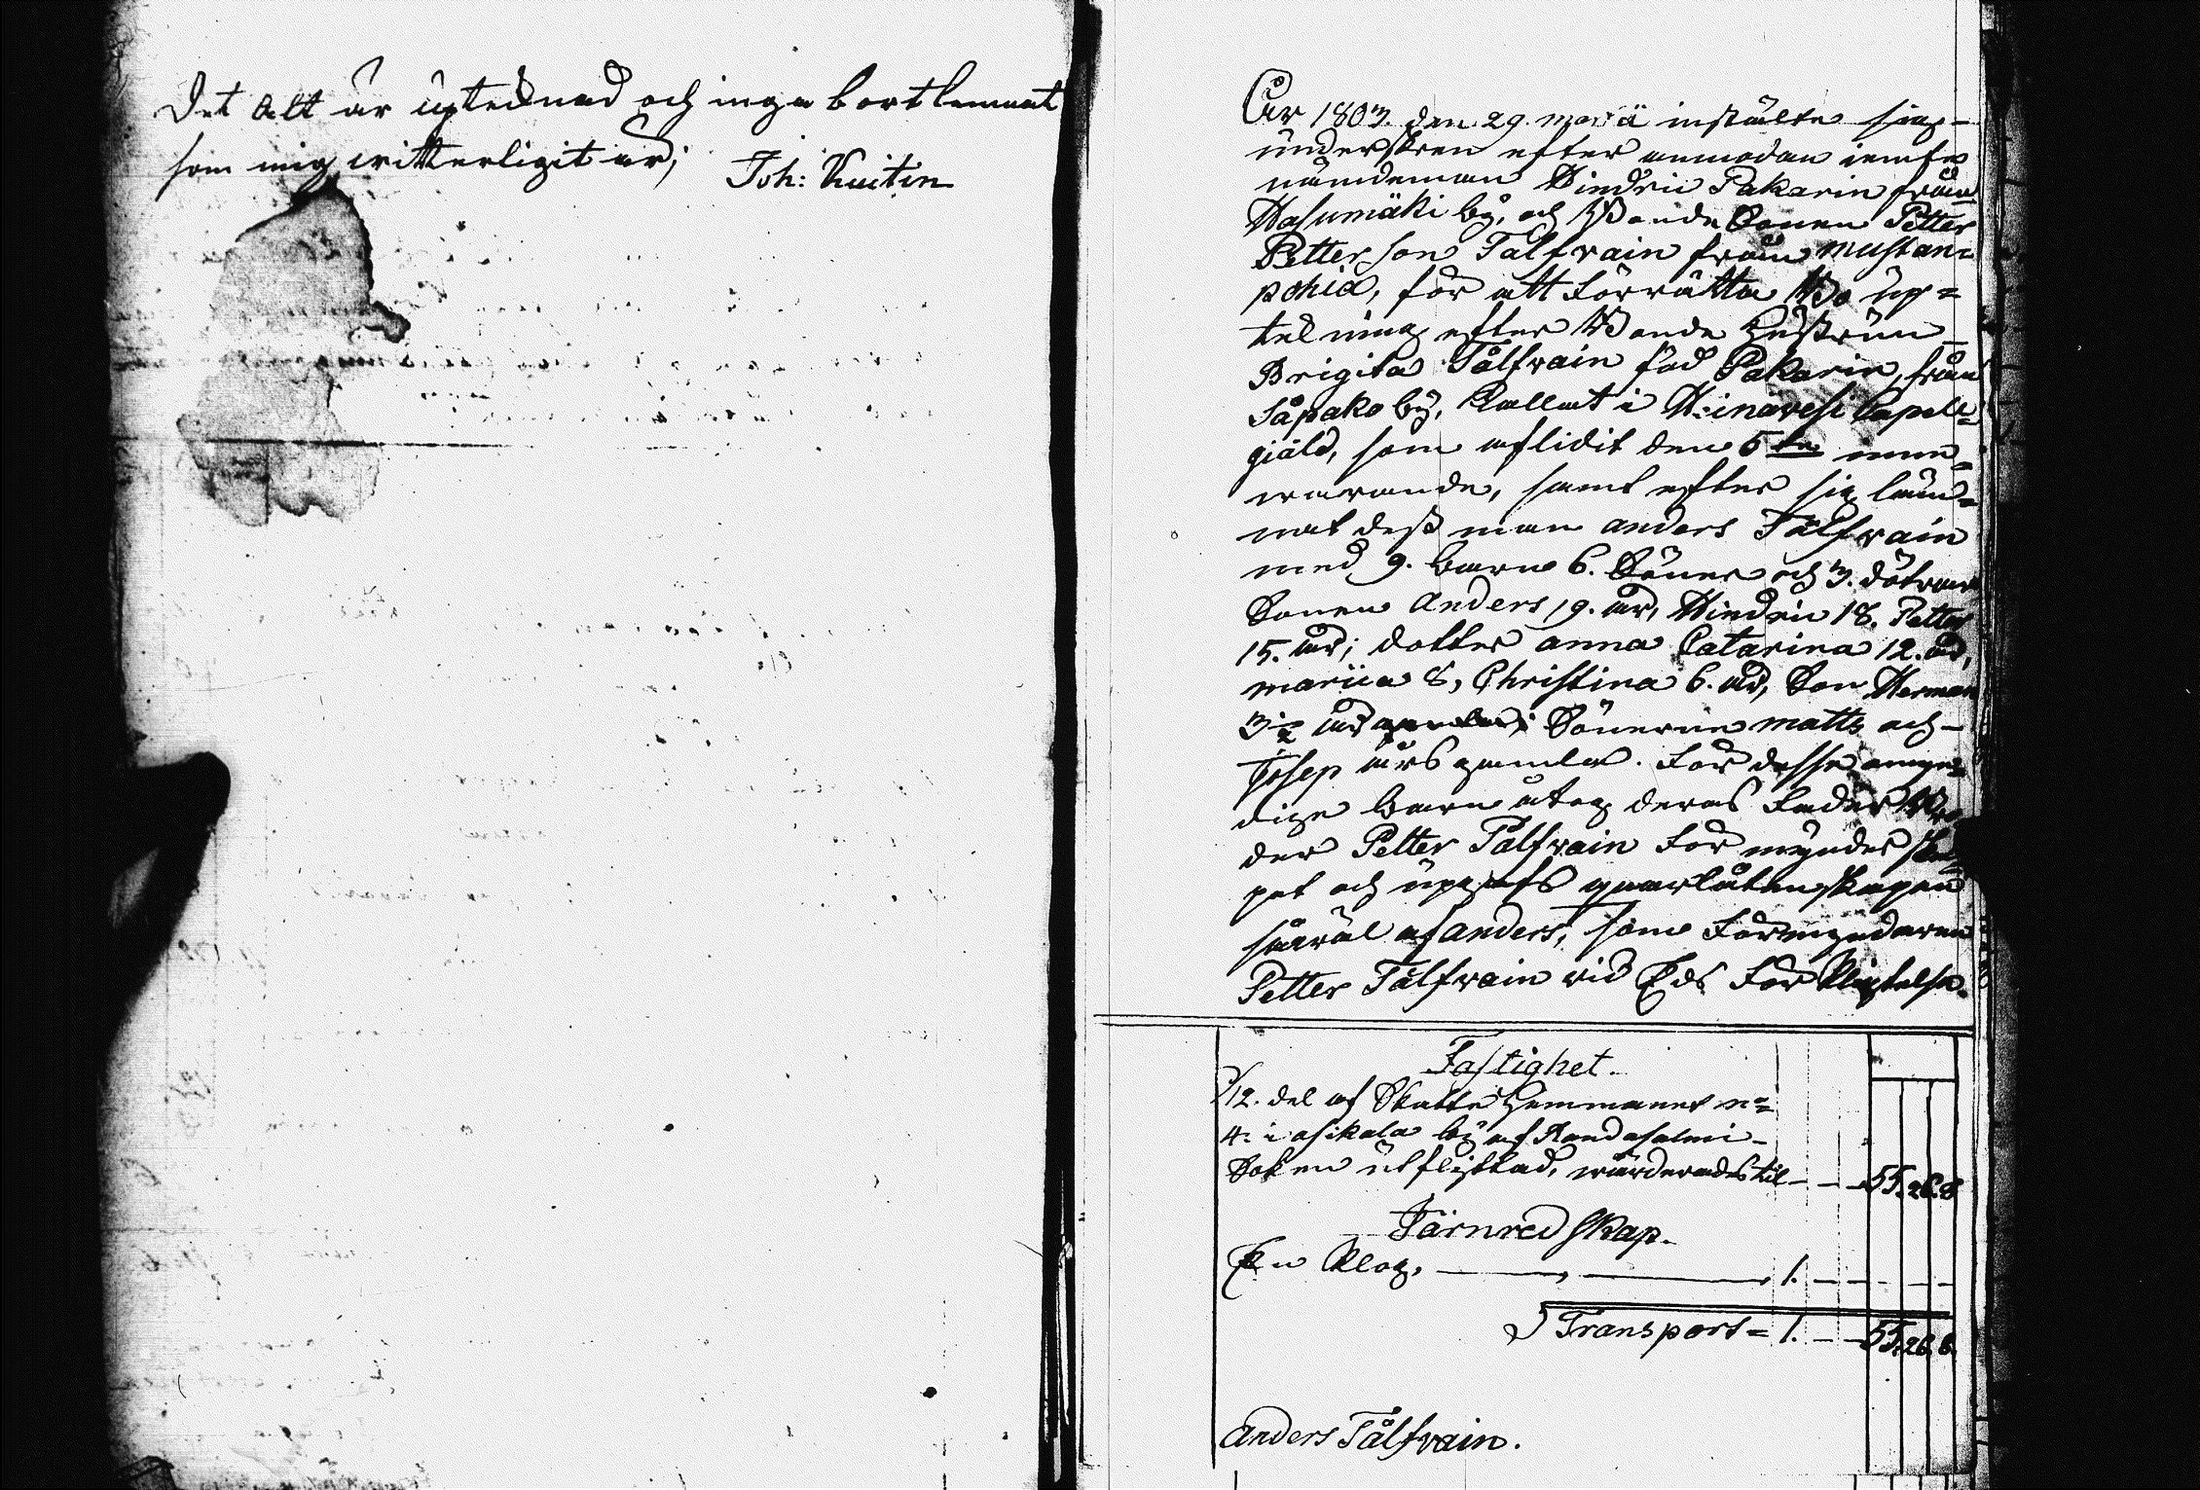 Det Alt är üptecknad och inga bortlemnat
som mig witterligit är; Joh: Kuitin
År 1803. den 29. maijä instälte sig
underskren efter anmodan iemte
nämdeman Hindric Pakarin från
Wasumäki bÿ, och Bonde Sonen Petter
Petterson Tålfvain från Mustan=
pohia, för att Förrätta Bo üp=
tekning efter Bonde Hustrun
Brigita Tålfvain föd Pakarin, från
Såpako bÿ, kallat i Heinävesi Capell=
giäld, som aflidit den 5te nu=
warande, samt efter sig läm=
nat dess man anders Tålfvain
med 9. barn 6. Söner och 3. döttrar
Sonen Anders 19. år, Hindric 18. Petter
15. år; dotter anna Catarina 12. år,
mariia 8, Christina 6. år, Son Herman
3 1/2 år Sönerne matts och
Josep års gamla. För desse omyn=
dige barn åtog deras Fader Bro
der Petter Tålfvain För myndes ska
pet och üpgafs qvarlåtenskapen
såwäl af anders, som Förmyndaren
Petter Tålfvain vid Eds Förpligtelse.
Fastighet.
1/12. del af Skatte Hemmanet n:o
4: i asikala bÿ af Randasalmi
Soken ütflÿttad, wärderades til - - - 55. 26. 8
Järnredskap.
En Klog, 1. - - - -
Transport = 1. - - 55. 26. 8.
Anders Tålfvain.